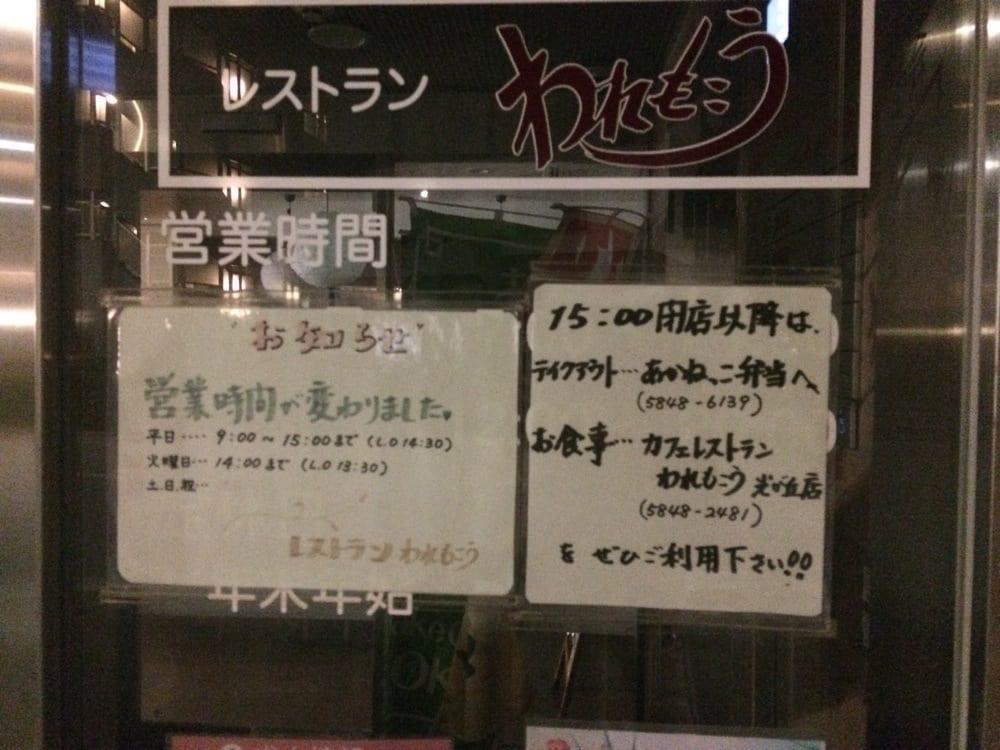 レストラン われもこう
営業時間
お知らせ
営業時間が変わりました。
平日‥‥ 9:00 ~ 15:00まで (L.O 14:30)
火曜日… 14:00まで (L.O 13:30)
土.日.祝…
レストラン われもこう
15:00閉店以降は、
テイクアウト… あかねっこ弁当へ
(5848-6139)
お食事… カフェレストラン
われもこう 光が丘店
(5848-2481)
を ぜひご利用下さい!!
年末年始